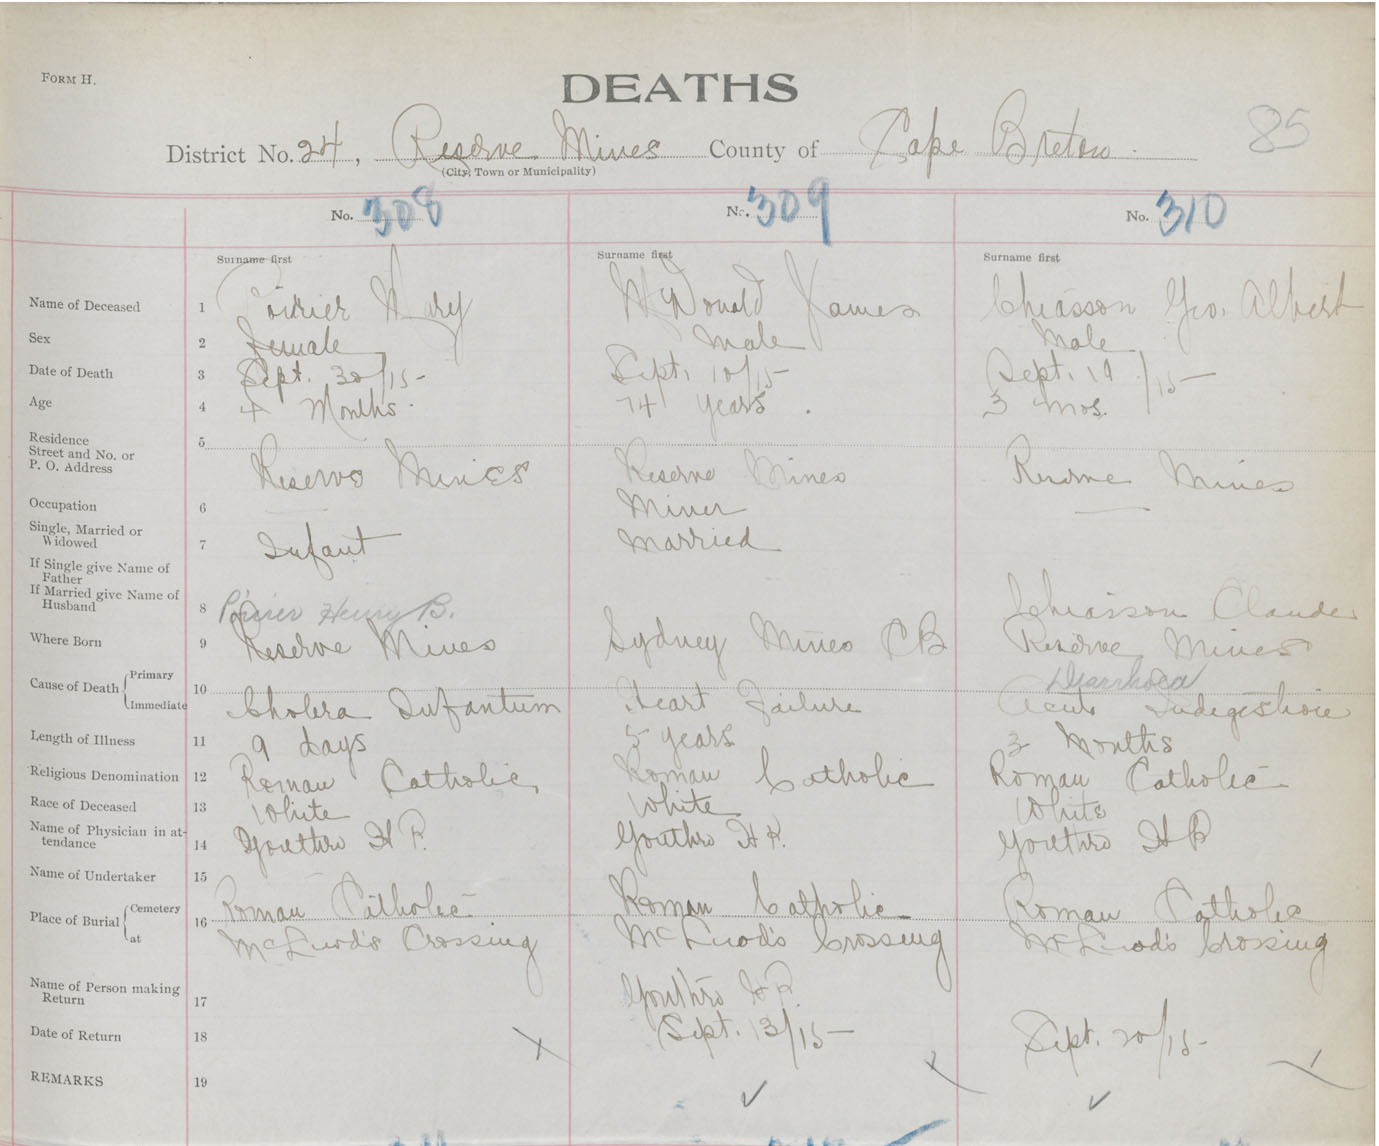 FORM H.
DEATHS
85
District No. 24, Reserve Mines County of Cape Breton
(City, Town or Municipality)
No. 308 No. 309 No. 310
Surname first Surname first Surname first
Name of Deceased 1 Poirier Mary McDonald James Chiasson Geo. Albert
Sex 2 Female Male Male
Date of Death 3 Sept. 30/15- Sept. 10/15 Sept. 19/15-
Age 4 4 Months. 74 years. 3 mos.
Residence
Street and No. or 5
P. O. Address Reserve Mines Reserve Mines Reserve Mines
Occupation 6 — Miner —
Single, Married or
Widowed 7 Infant Married
If Single give Name of
Father
If Married give Name of
Husband 8 Poirier Henry B. Chiasson Claude
Where Born 9 Reserve Mines Sydney Mines CB Reserve Mines
Cause of Death Primary 10 Diarrhoea
Immediate Cholera Infantum Heart Failure Acute Indegestion
Length of Illness 11 9 days 5 years 3 Months
Religious Denomination 12 Roman Catholic Roman Catholic Roman Catholic
Race of Deceased 13 White White White
Name of Physician in at-
tendance 14 Youthro H F. Youthro H F. Youthro H F
Name of Undertaker 15
Place of Burial Cemetery 16 Roman Catholic Roman Catholic Roman Catholic
at McLeod's Crossing McLeod's Crossing McLeod's Crossing
Name of Person making
Return 17 Youthro H F.
Date of Return 18 Sept. 13/15- Sept. 20/15-
REMARKS 19